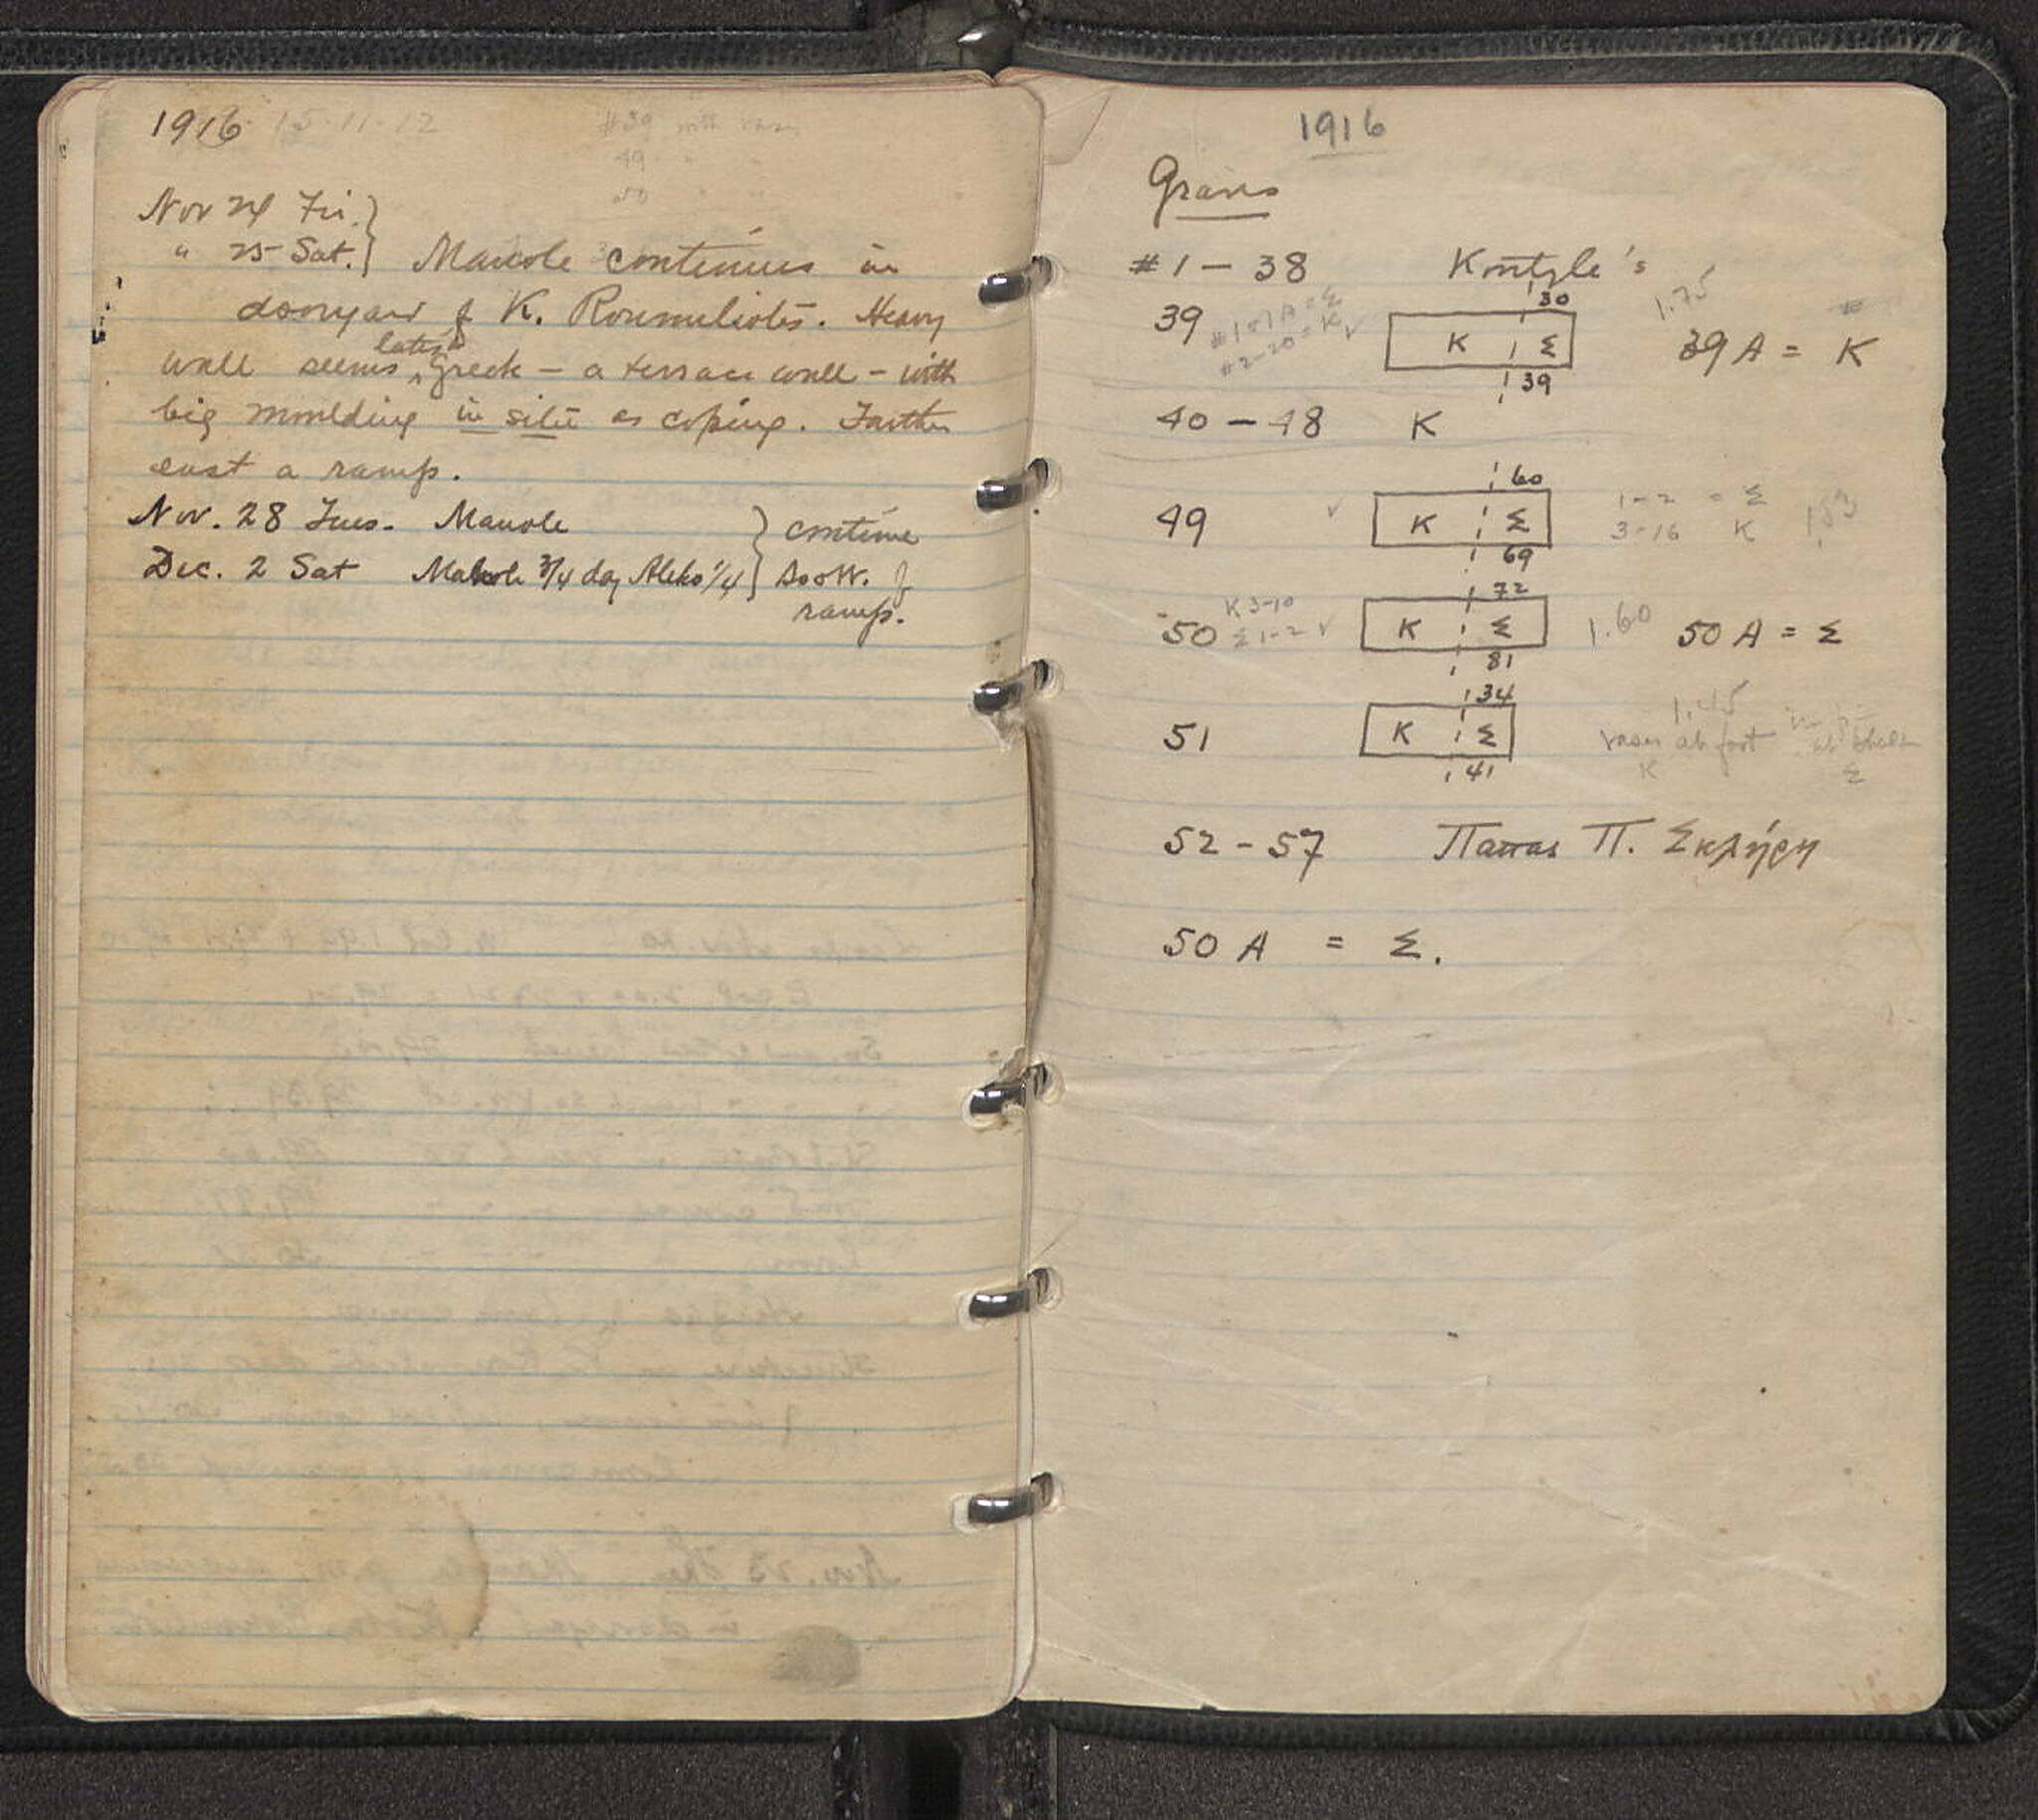 1916 15-11-12
#39 with vases
49 " "
50 " "
Nov 24 Fri.
" 25 Sat. } Manole continues in
dooryard of K. Roumeliotis. Heavy
wall seems later Greek – a terrace wall – with
big moulding in situ as coping. Further
east a ramp.
Nov. 28 Tues. Manole } continue
Dec. 2 Sat Manole 3/4 day Aleko 1/4 } So + W. of
ramp.
1916
Graves
#1 – 38 Kontzle's
30
39 #1+1A = Σ K Σ 1.75 39A = K
#2-20 = K ✓
39
40 – 48 K
60
49 ✓ K Σ 1-2 = Σ 1.83
3-16 K
69
72
50 K 3-10 K Σ 1.60 50A = Σ
Σ 1-2 ✓
81
34
51 K Σ 1.45
vases at foot
K Σ
41
52 – 57 Παπας Π. Σκλήρη
50 A = Σ.